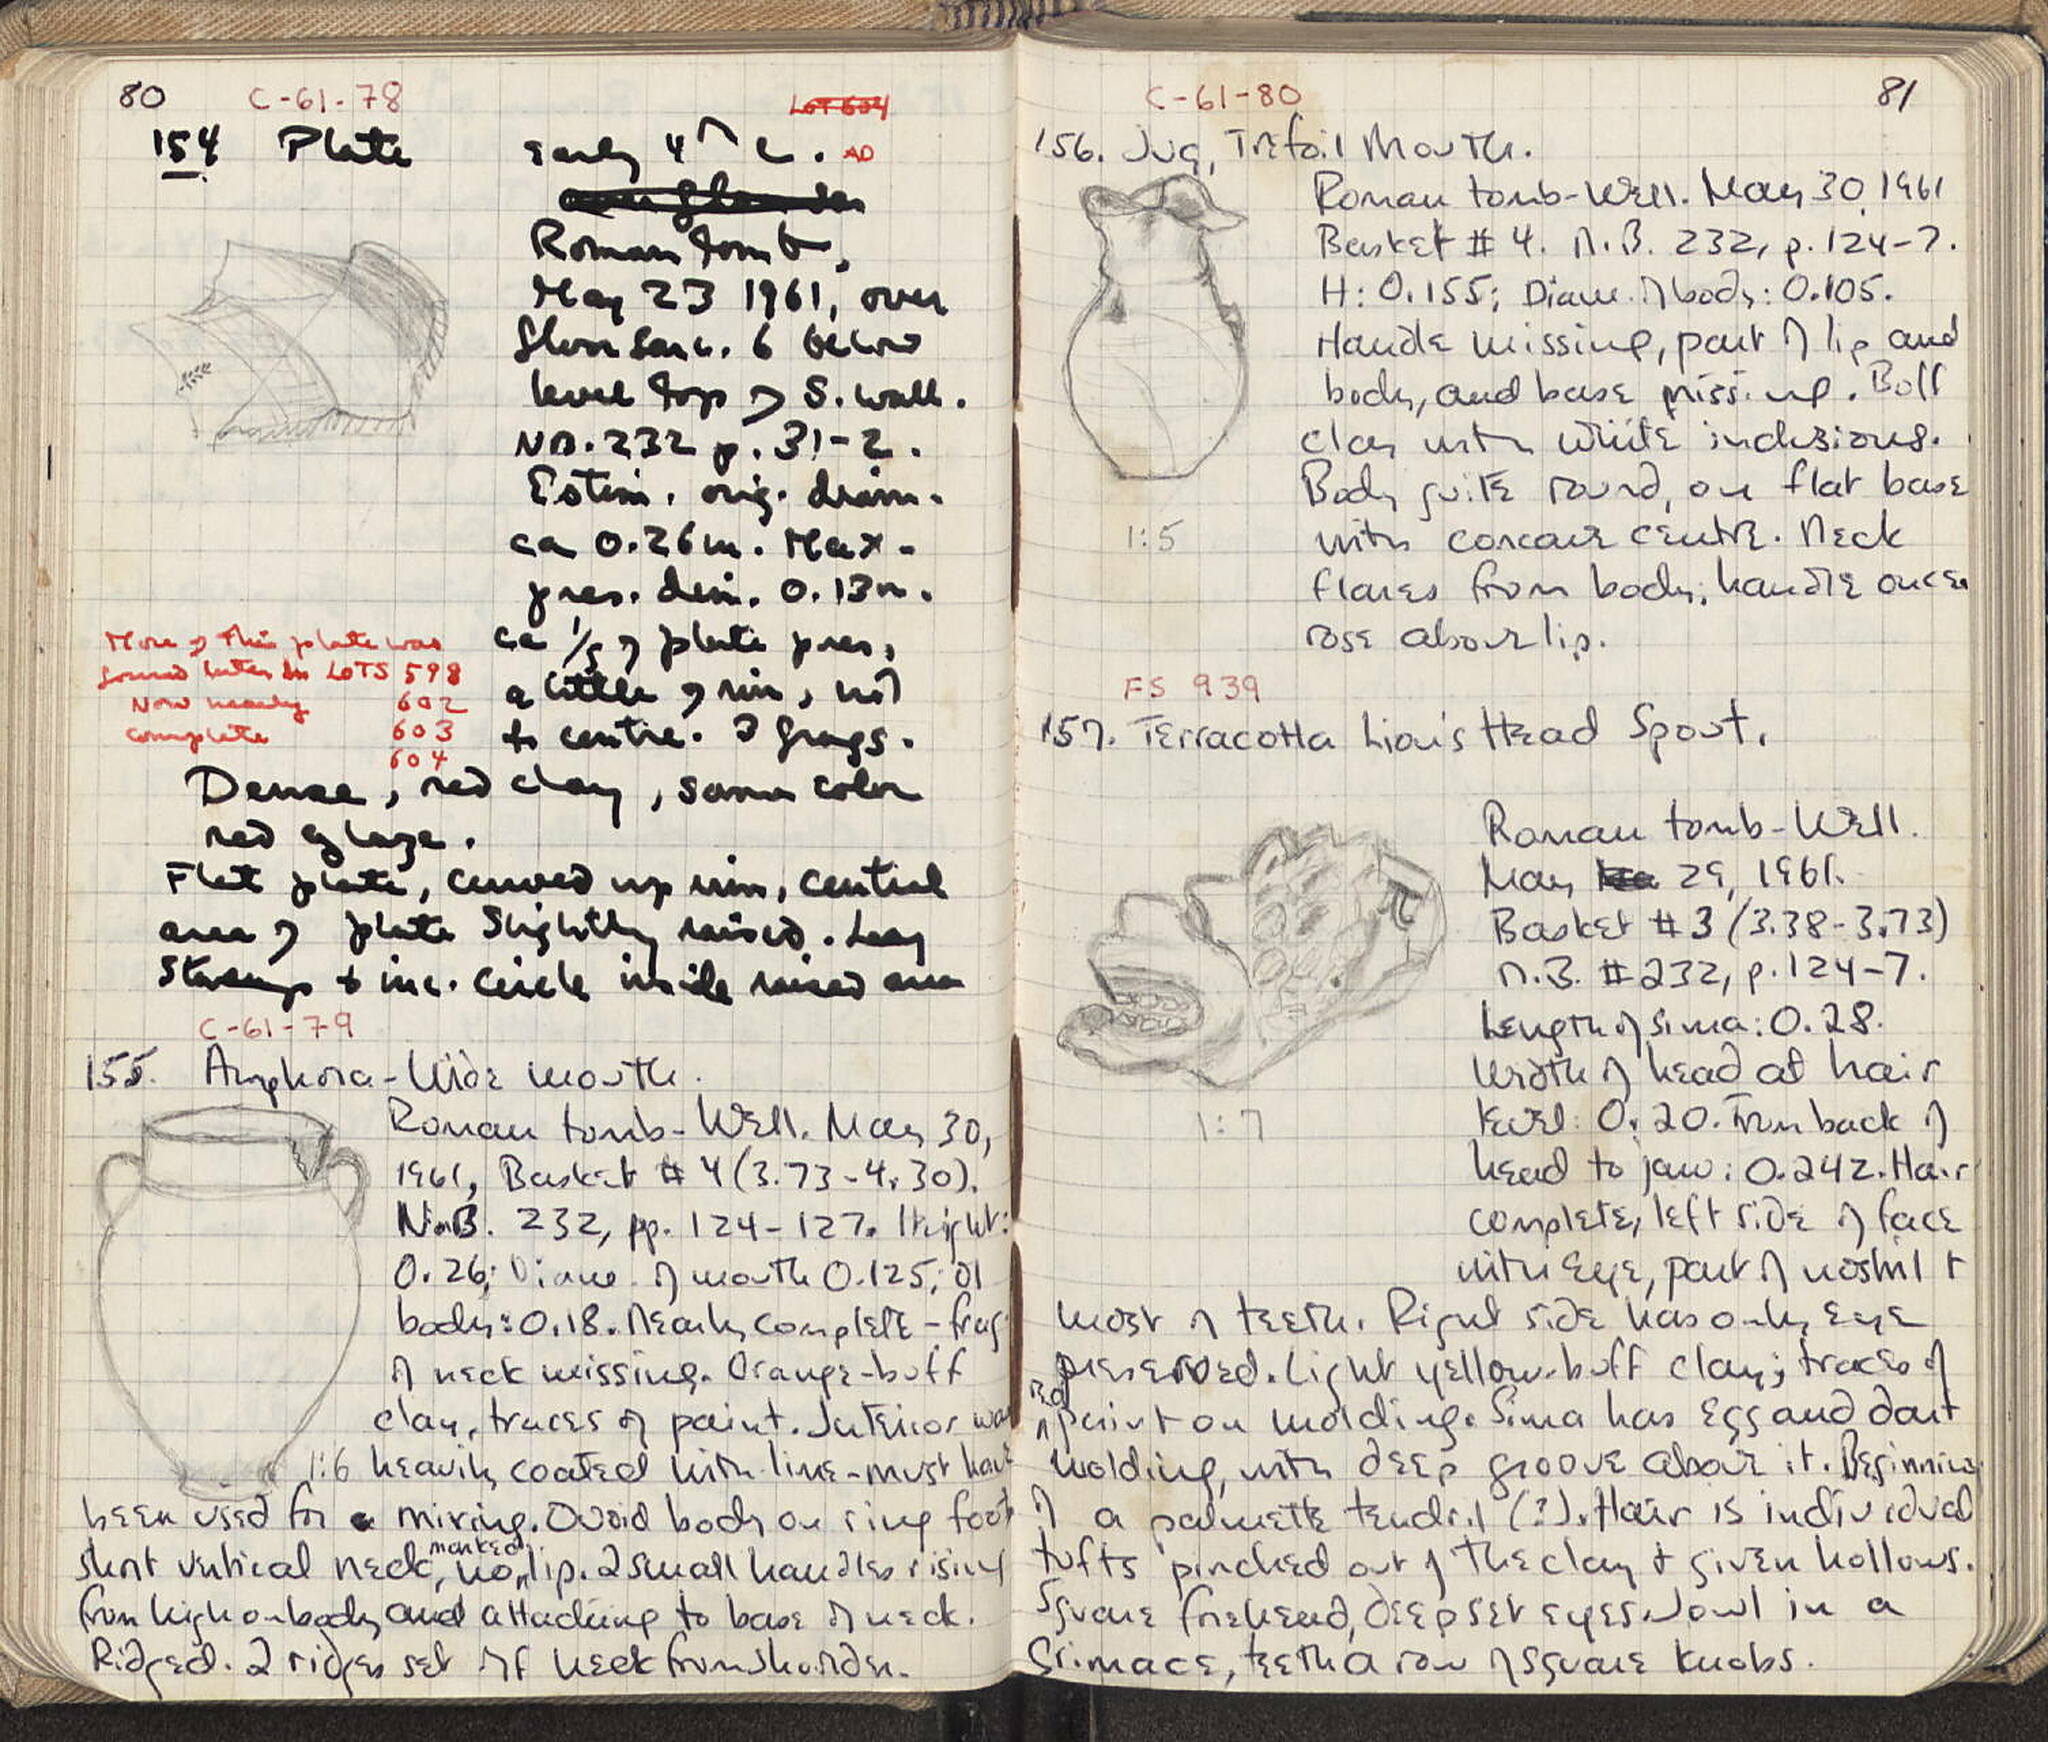 80 C-61-78 LOT 604
154 Plate early 4th c. AD
Roman tomb,
May 23 1961, over
floor Sarc. 6 below
level top of S. wall.
NB. 232 p. 31-2.
Estim. orig. diam.
ca 0.26m. Max.
pres. dim. 0.13m.
ca 1/5 of plate pres,
a little of rim, not
to centre. 3 frags.
More of this plate was
found later in LOTS 598
Now nearly 602
complete 603
604
Dense, red clay, same color
red glaze.
Flat plate, curved up rim, central
area of plate slightly raised. Leaf
stamp & inc. circle inside raised area
C-61-79
155. Amphora-Wide mouth.
Roman tomb-Well. May 30,
1961, Basket #4 (3.73-4.30).
N.B. 232, pp. 124-127. Height:
0.26; Diam. of mouth 0.125; of
body: 0.18. Nearly complete - frag
of neck missing. Orange-buff
clay, traces of paint. Interior was
1:6 heavily coated with lime-must have
been used for a mixing. Ovoid body on ring foot
short vertical neck, no marked lip. 2 small handles rising
from high on body and attaching to base of neck.
Ridged. 2 ridges set off neck from shoulder.
C-61-80 81
156. Jug, Trefoil Mouth.
Roman tomb-Well. May 30, 1961
Basket #4. N.B. 232, p. 124-7.
H: 0.155; Diam. of body: 0.105.
Handle missing, part of lip and
body, and base missing. Buff
clay with white inclusions.
Body quite round, on flat base
1:5 with concave centre. Neck
flares from body; handle once
rose above lip.
FS 939
157. Terracotta Lion's Head Spout.
Roman tomb-Well.
May 29, 1961.
Basket #3 (3.38-3.73)
N.B. #232, p. 124-7.
Length of sima: 0.28.
Width of head at hair
1:7
level: 0.20. From back of
head to jaw: 0.242. Hair
complete, left side of face
with eye, part of nostril +
most of teeth. Right side has only eye
preserved. Light yellow-buff clay; traces of
red paint on molding. Sima has egg and dart
molding, with deep groove above it. Beginning
of a palmette tendril (?). Hair is individual
tufts pinched out of the clay & given hollows.
Square forehead, deep set eyes. Jowl in a
Grimace, teeth a row of square knobs.